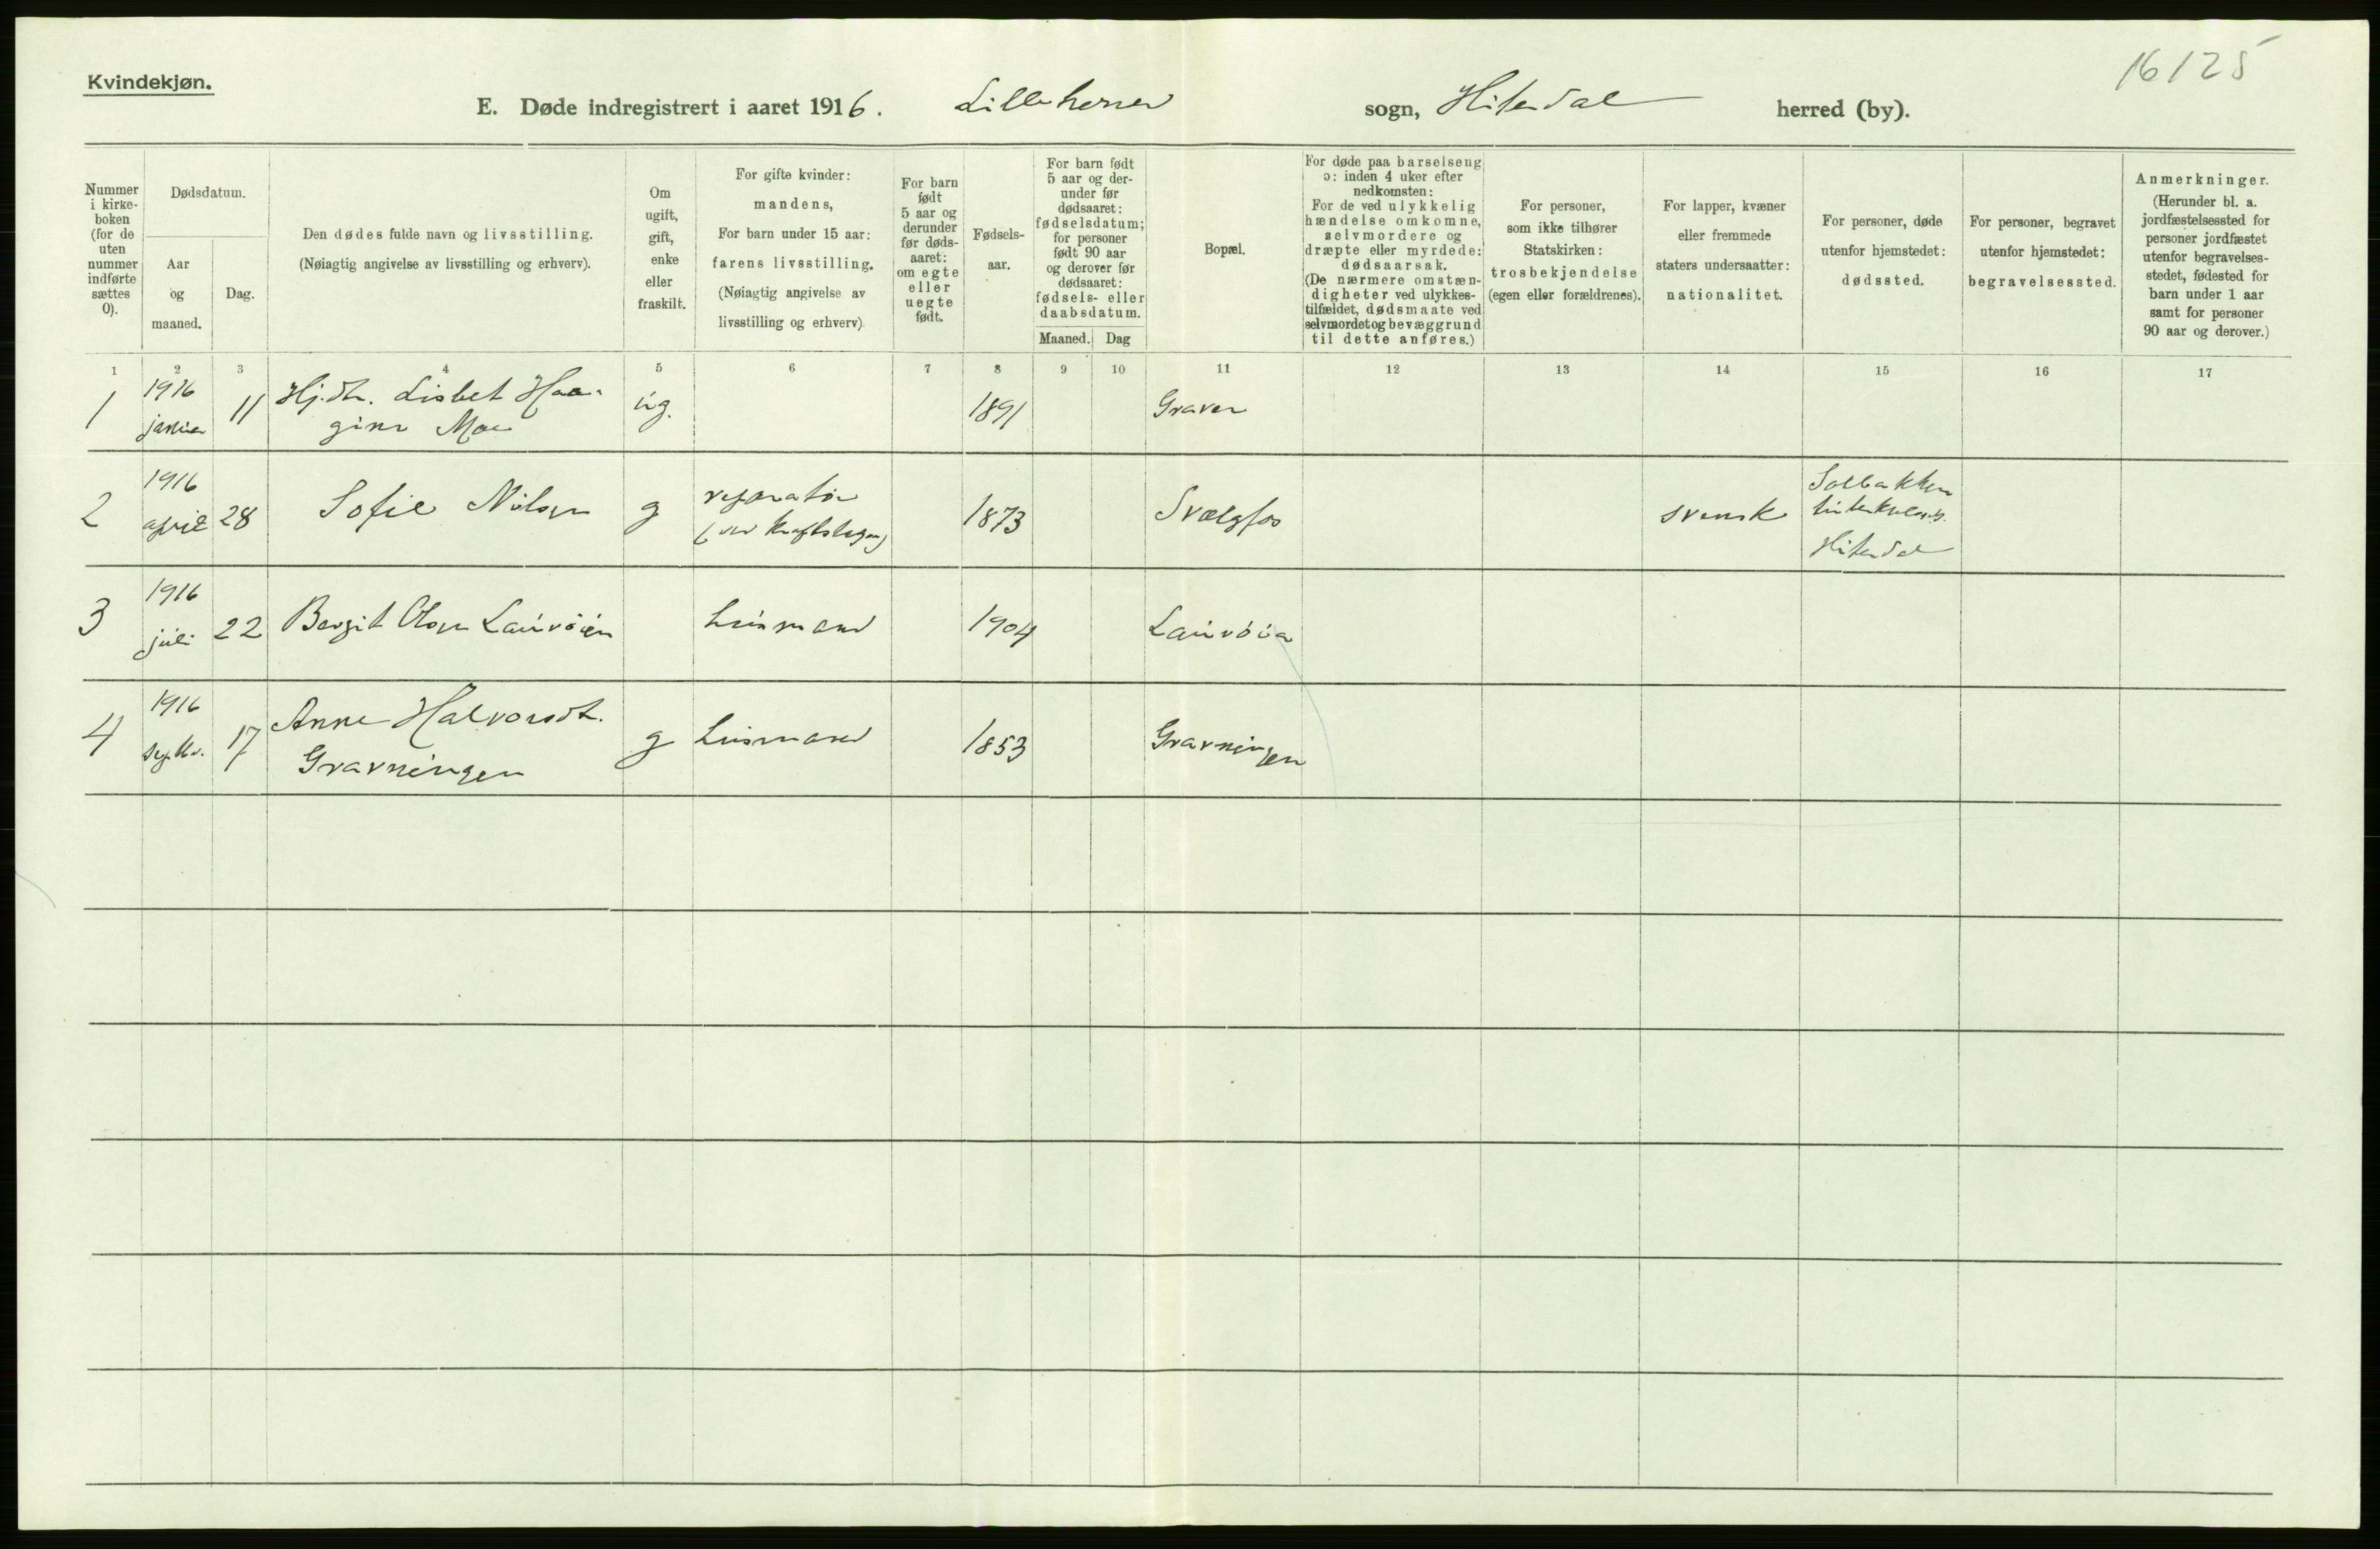 16125
Kvindekjøn.
E. Døde indregistrert i aaret 1916. Lilleherred sogn, Hiterdal herred (by).
Nummer i kirke- boken (for de uten nummer indførte sættes 0).
Dødsdatum.
Aar og maaned.
Dag.
Den dødes fulde navn og livsstilling.
(Nøiagtig angivelse av livsstilling og erhverv).
Om ugift, gift, enke eller fraskilt.
For gifte kvinder:
mandens,
For barn under 15 aar:
farens livsstilling.
(Nøiagtig angivelse av
livsstilling og erhverv)
For barn født 5 aar og derunder før døds- aaret: om egte eller uegte født.
Fødsels- aar.
For barn født 5 aar og der- under før dødsaaret: fødselsdatum; for personer født 90 aar og derover før dødsaaret: fødsels- eller daabsdatum.
Maaned. Dag
Bopæl.
For døde paa barselseng ɔ: inden 4 uker efter nedkomsten:
For de ved ulykkelig hændelse omkomne, selvmordere og dræpte eller myrdede: dødsaarsak.
(De nærmere omstæn- digheter ved ulykkes- tilfældet, dødsmaate ved selvmordet og bevæggrund til dette anføres.)
For personer,
som ikke tilhører
Statskirken:
trosbekjendelse
(egen eller forældrenes).
For lapper, kvæner
eller fremmede
staters undersaatter:
nationalitet.
For personer, døde
utenfor hjemstedet:
dødssted.
For personer, begravet
utenfor hjemstedet:
begravelsessted.
Anmerkninger.
(Herunder bl. a.
jordfæstelsessted for
personer jordfæstet
utenfor begravelses-
stedet, fødested for
barn under 1 aar
samt for personer
90 aar og derover.)
1 2 3 4 5 6 7 8 9 10 11 12 13 14 15 16 17
1 1916 januar 11 Hj.dtr. Lisbet Haa- gine Moe ug. 1891 Graver
2 1916 april 28 Sofie Nilsen g reparatør (ved Kraftstasjon) 1873 Svælgfos svensk Solbakken Hiterdal
3 1916 juli 22 Bergit Olsen Lauvøien husmand 1904 Lauvøia
4 1916 septbr. 17 Anne Halvorsdt. Gravningen g husmand 1853 Gravningen